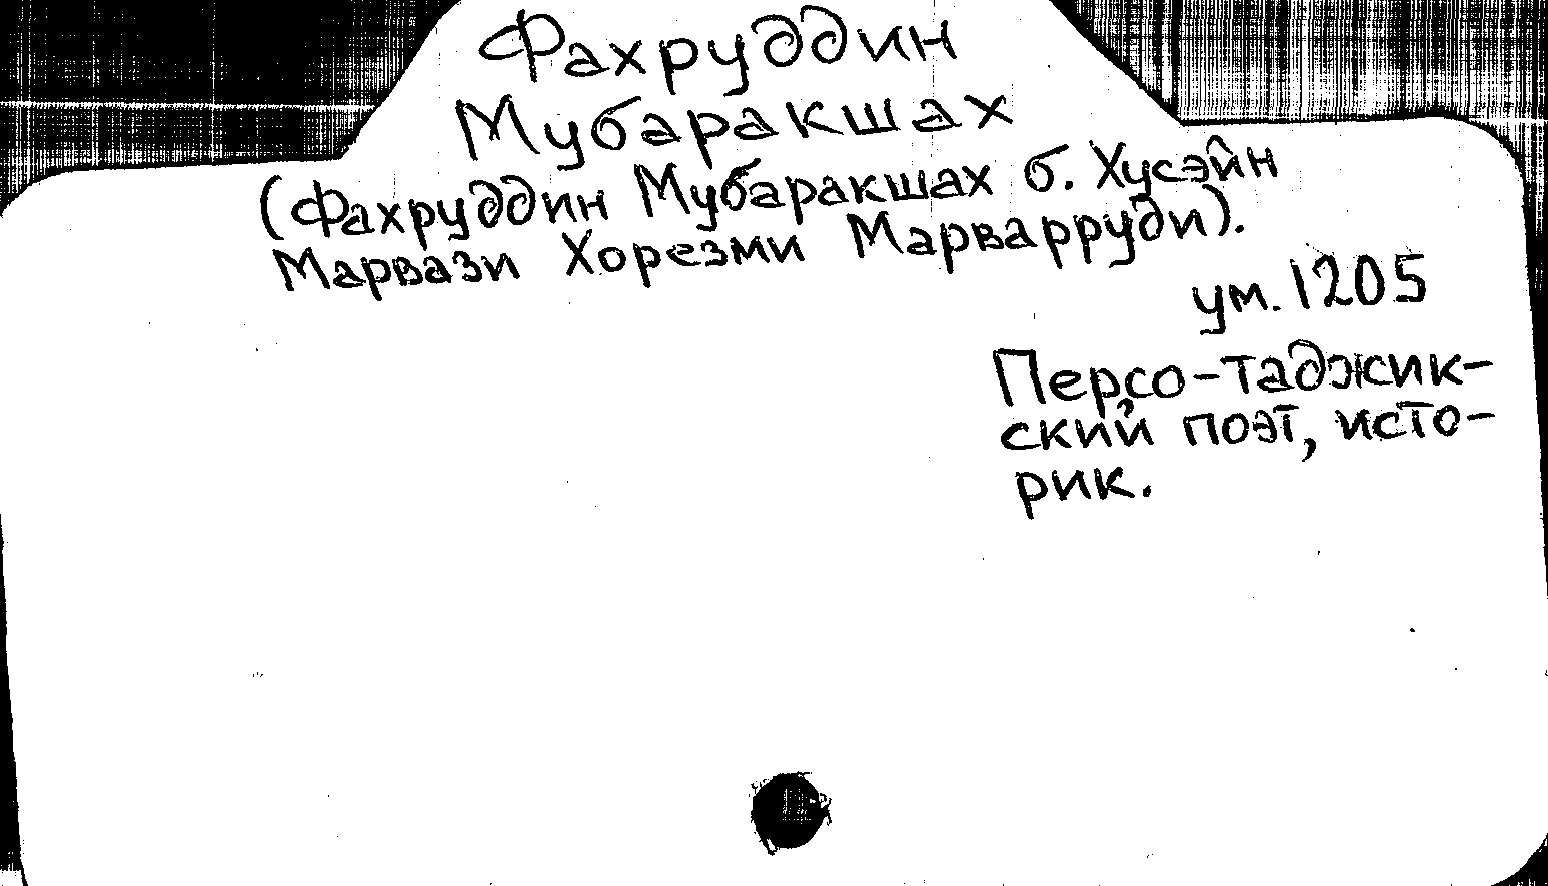 Фахруддин
Мубаракшах
(Фахруддин Мубаракшах б. Хусэйн
Марвази Хорезми Марварруди).
ум. 1205
Персо-таджик-
ский поэт, исто-
рик.